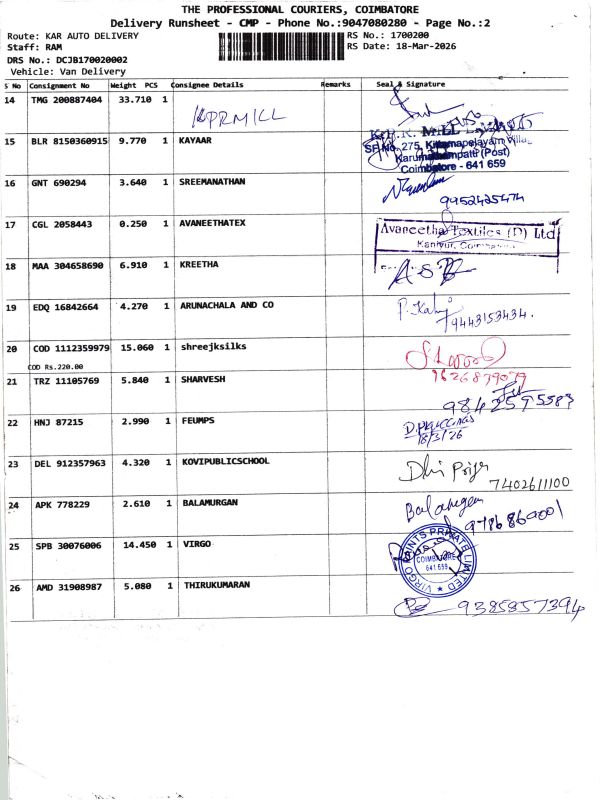 THE PROFESSIONAL COURIERS, COIMBATORE
Delivery Runsheet - CMP - Phone No.:9047080280 - Page No.:2
Route: KAR AUTO DELIVERY RS No.: 1700200
Staff: RAM RS Date: 18-Mar-2026
DRS No.: DCJB170020002
Vehicle: Van Delivery
S No Consignment No Weight PCS Consignee Details Remarks Seal & Signature
14 TMG 200887404 33.710 1 KPRMILL
K.P.R. MILL
SF No. 275, Kittampalayam Villa
Karumathampatti (Post)
Coimbatore - 641 659
15 BLR 8150360915 9.770 1 KAYAAR
16 GNT 690294 3.640 1 SREEMANATHAN
9952425474
17 CGL 2058443 0.250 1 AVANEETHATEX
Avaneetha Textiles (P) Ltd
Kaniyur, Coimbatore
18 MAA 304658690 6.910 1 KREETHA
19 EDQ 16842664 4.270 1 ARUNACHALA AND CO
9443153434.
20 COD 1112359979 15.060 1 shreejksilks
COD Rs.220.00
9626879079
21 TRZ 11105769 5.840 1 SHARVESH
9842595583
22 HNJ 87215 2.990 1 FEUMPS
18/3/26
23 DEL 912357963 4.320 1 KOVIPUBLICSCHOOL
7402611100
24 APK 778229 2.610 1 BALAMURGAN
Balamurgan
9786869001
25 SPB 30076006 14.450 1 VIRGO
VIRGO PRINTS PRIVATE LIMITED
COIMBATORE
641 659
26 AMD 31908987 5.080 1 THIRUKUMARAN
9385857394